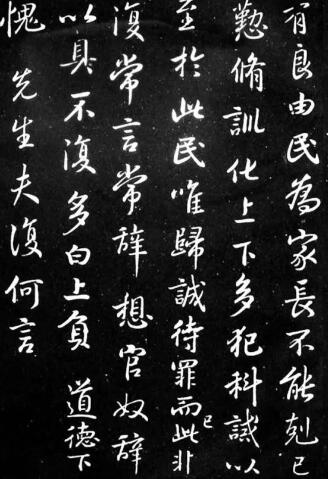 省良由民為家長不能剋己
懃脩訓化上下多犯科誡以
至於此民唯歸誠待罪而已此非
復常言常辭想官奴辭
以具不復多白上負 道德下
愧 先生夫復何言